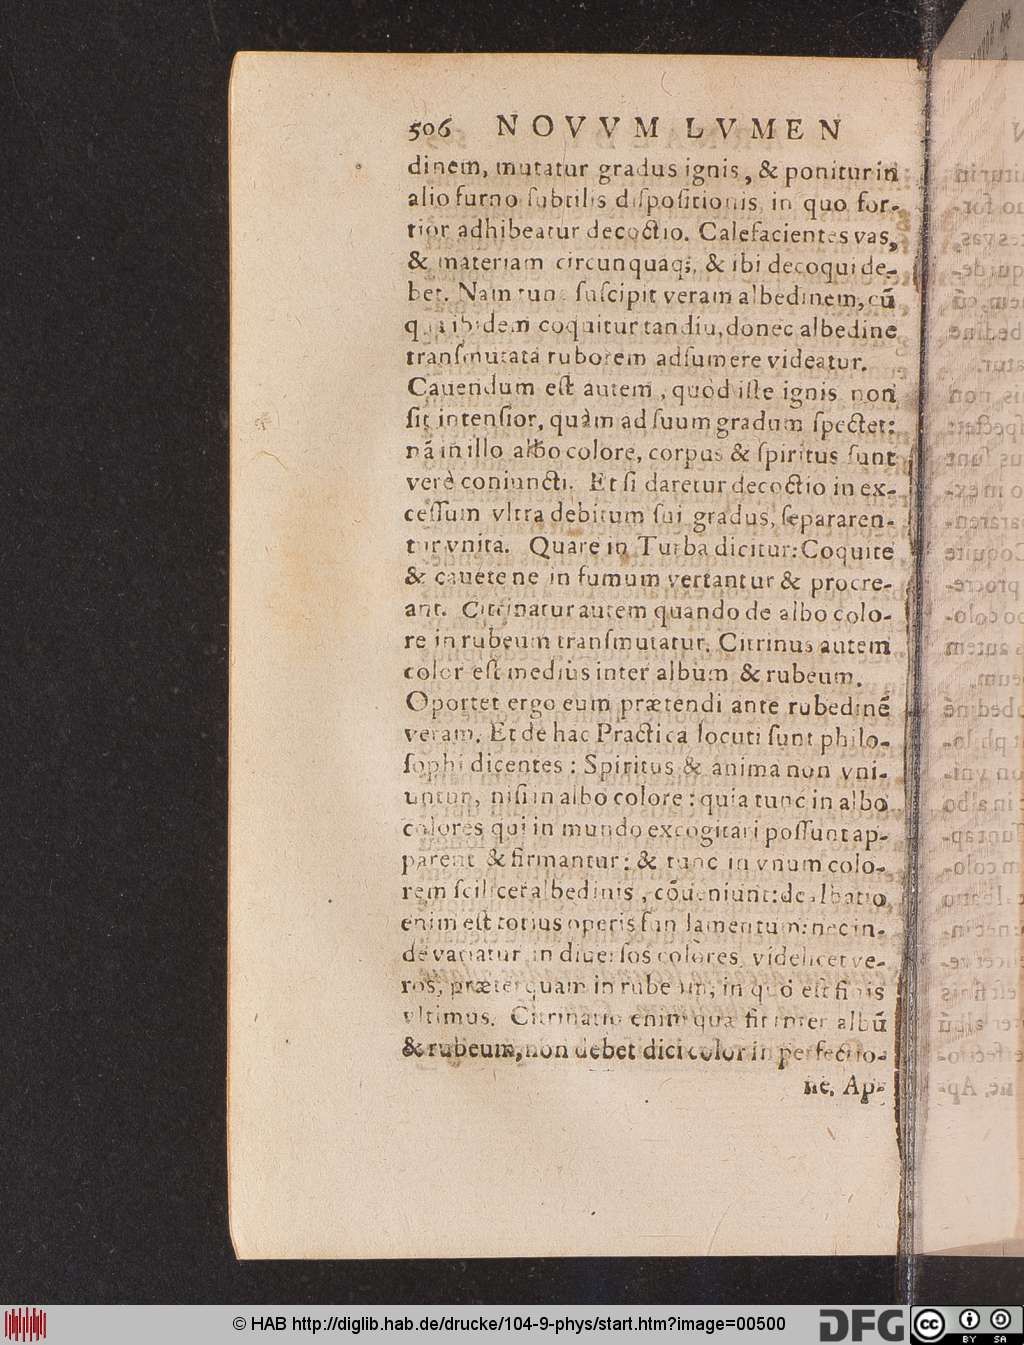 506 NOVVM LVMEN
dinem, mutatur gradus ignis, & ponitur in
alio furno subtilis dispositionis, in quo for-
tior adhibeatur decoctio. Calefacientes vas,
& materiam circunquaq;, & ibi decoqui de-
bet. Nam tunc suscipit veram albedinem, cũ
quia ibidem coquitur tandiu, donec albedine
transmutata ruborem adsumere videatur.
Cauendum est autem, quòd iste ignis non
sit intensior, quàm ad suum gradum spectet:
nã in illo albo colore, corpus & spiritus sunt
verè coniuncti. Et si daretur decoctio in ex-
cessum vltra debitum sui gradus, separaren-
tur vnita. Quare in Turba dicitur: Coquite
& cauete ne in fumum vertantur & procre-
ant. Citrinatur autem quando de albo colo-
re in rubeum transmutatur. Citrinus autem
color est medius inter album & rubeum.
Oportet ergo eum prætendi ante rubedinẽ
veram. Et de hac Practica locuti sunt philo-
sophi dicentes: Spiritus & anima non vni-
untur, nisi in albo colore: quia tunc in albo
colores qui in mundo excogitari possunt ap-
parent & firmantur: & tunc in vnum colo-
rem scilicet albedinis, cõueniunt: dealbatio
enim est totius operis fundamentum: nec in-
de variatur in diuersos colores, videlicet ve-
ros, præterquam in rubeum, in quo est finis
vltimus. Citrinatio enim quæ fit inter albũ
& rubeum, non debet dici color in perfectio-
ne. Ap-
© HAB http://diglib.hab.de/drucke/104-9-phys/start.htm?image=00500
DFG
cc
BY SA